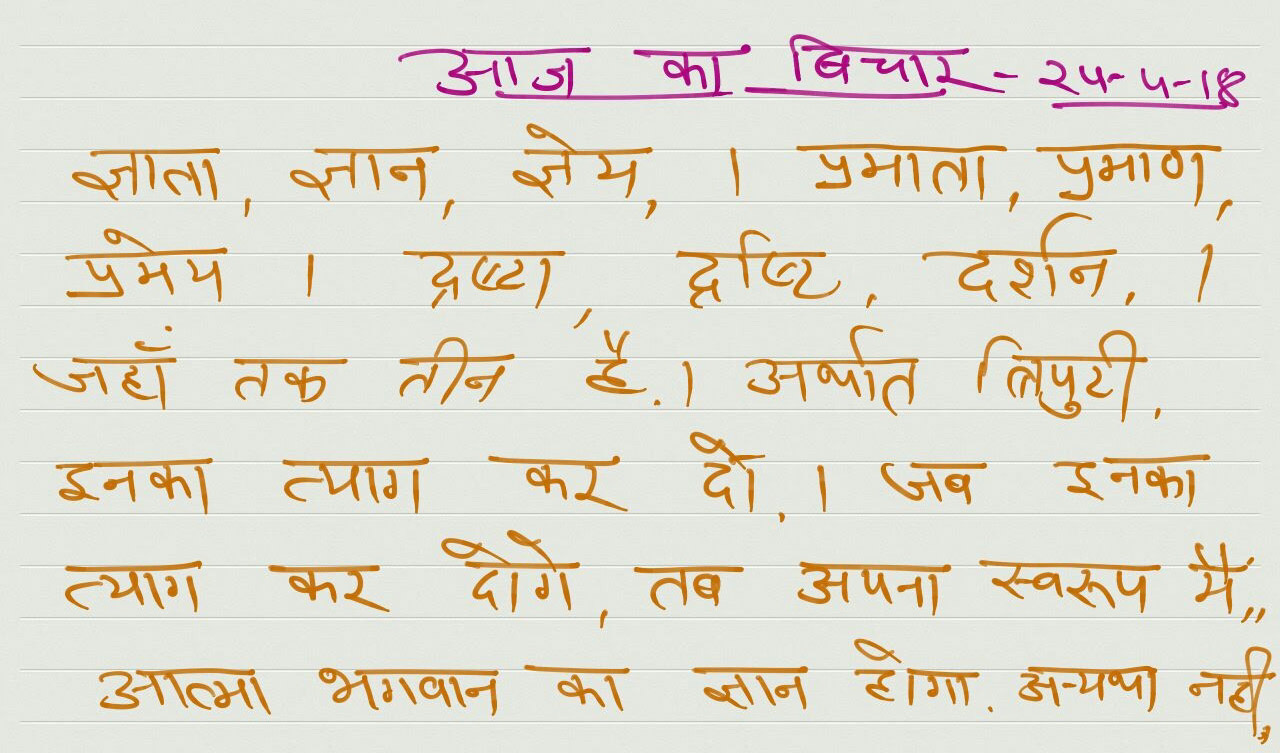 आज का बिचार - २५-५-18
ज्ञाता, ज्ञान, ज्ञेय, । प्रमाता, प्रमाण,
प्रमेय । द्रष्टा, द्रष्टि, दर्शन, ।
जहाँ तक तीन है. । अर्थात त्रिपुटी.
इनका त्याग कर दो. । जब इनका
त्याग कर दोगे, तब अपना स्वरूप मैं,,
आत्मा भगवान का ज्ञान होगा. अन्यथा नही,,